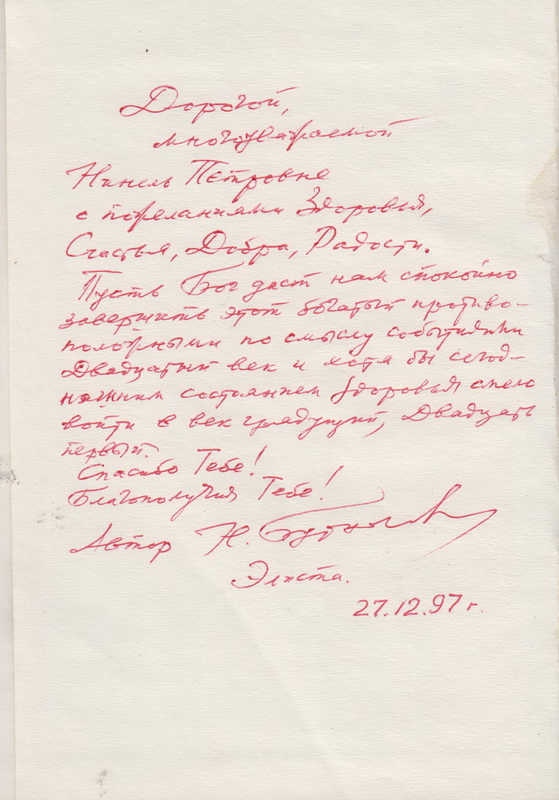 Дорогой,
многоуважаемой
Нинель Петровне
с пожеланиями Здоровья,
Счастья, Добра, Радости.
Пусть Бог даст нам спокойно
завершить этот богатый противо-
положными по смыслу событиями
Двадцатый век и хотя бы сегод-
няшним состоянием здоровья смело
войти в век грядущий, Двадцать
первый.
Спасибо Тебе!
Благополучия Тебе!
Автор Н.
Элиста.
27.12.97 г.